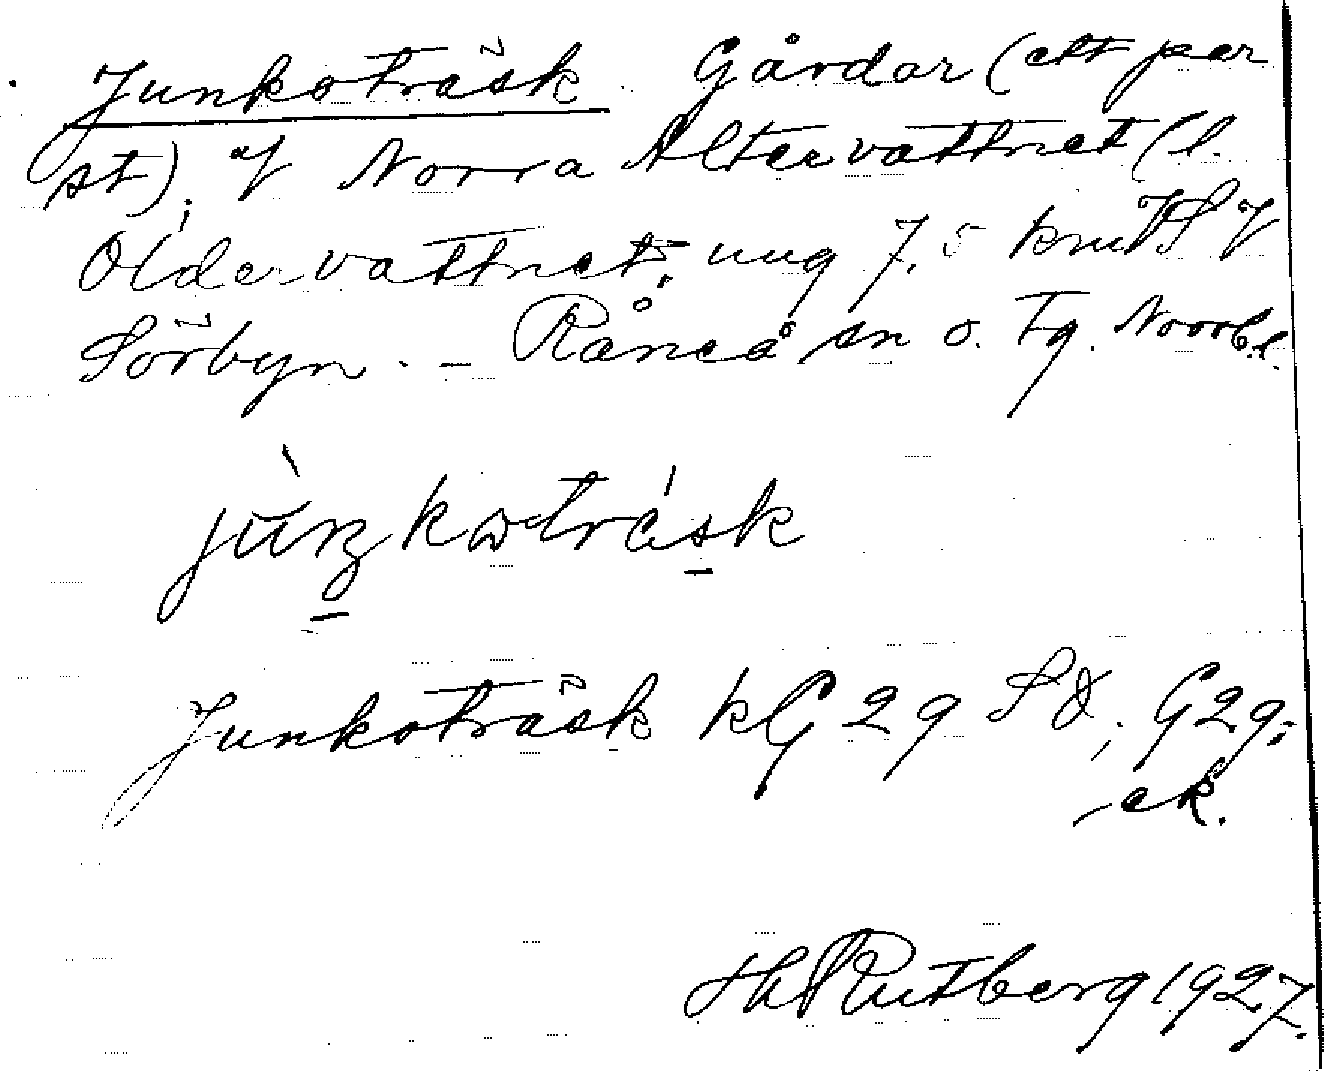 Junkoträsk. Gårdar (ett par
st), V Norra Altervattnet (l.
Oldervattnet, ung 7,5 km VSV
Sörbyn. - Råneå sn o. tg. Norrb.l.
Junkoträsk kG 29 SO; G29;
ek.
H Rutberg 1927.